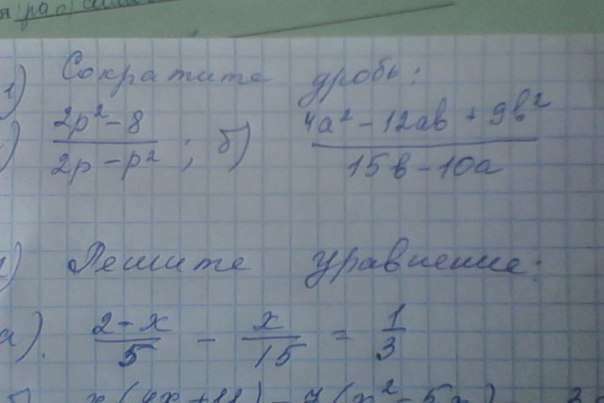 1) Сократите дробь:
а) (2p² - 8)/(2p - p²); б) (4a² - 12ab + 9b²)/(15b - 10a)
Решите уравнение:
а). (2 - x)/5 - x/15 = 1/3